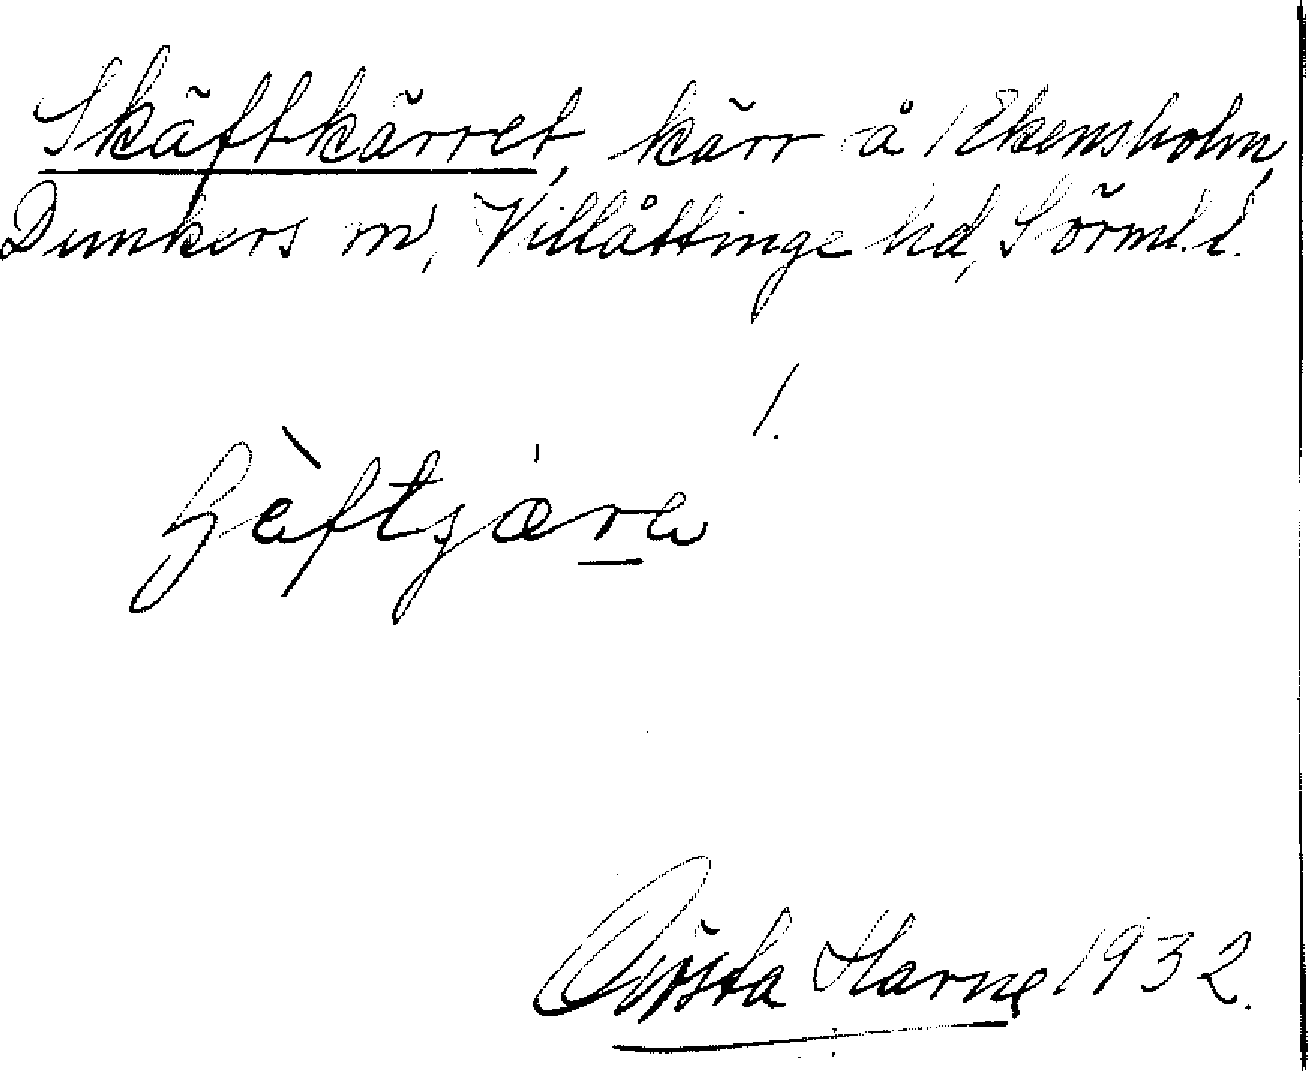 Skäftkärret, kärr å Ekensholm,
Dunkers sn, Villåttinge hd, Sörml.l.
!
Gösta Harne 1932.